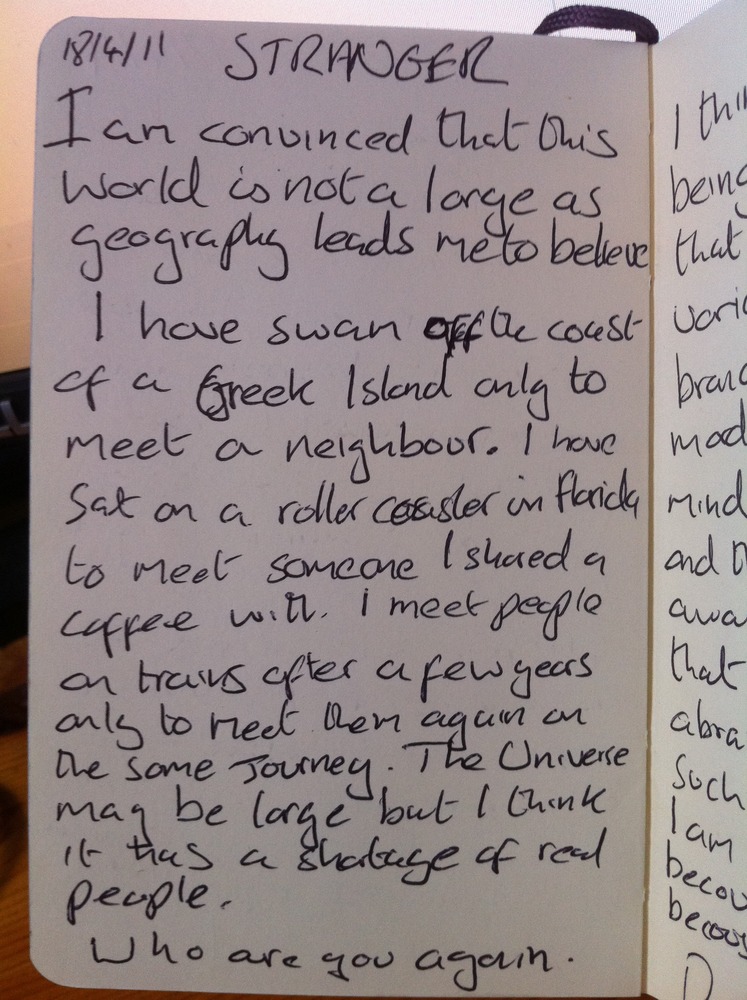 18/4/11 STRANGER
I am convinced that this
World is not a large as
geography leads me to believe
I have swam off the coast
of a Greek Island only to
meet a neighbour. I have
Sat on a roller coaster in florida
to meet someone I shared a
coffee with. I meet people
on trains after a few years
only to meet them again on
the same Journey. The Universe
may be large but I think
it has a shortage of real
people.
Who are you again.
I thin
being
that
varic
branc
mod
mind
and t
awa
that
abra
Such
I am
becou
becous
D